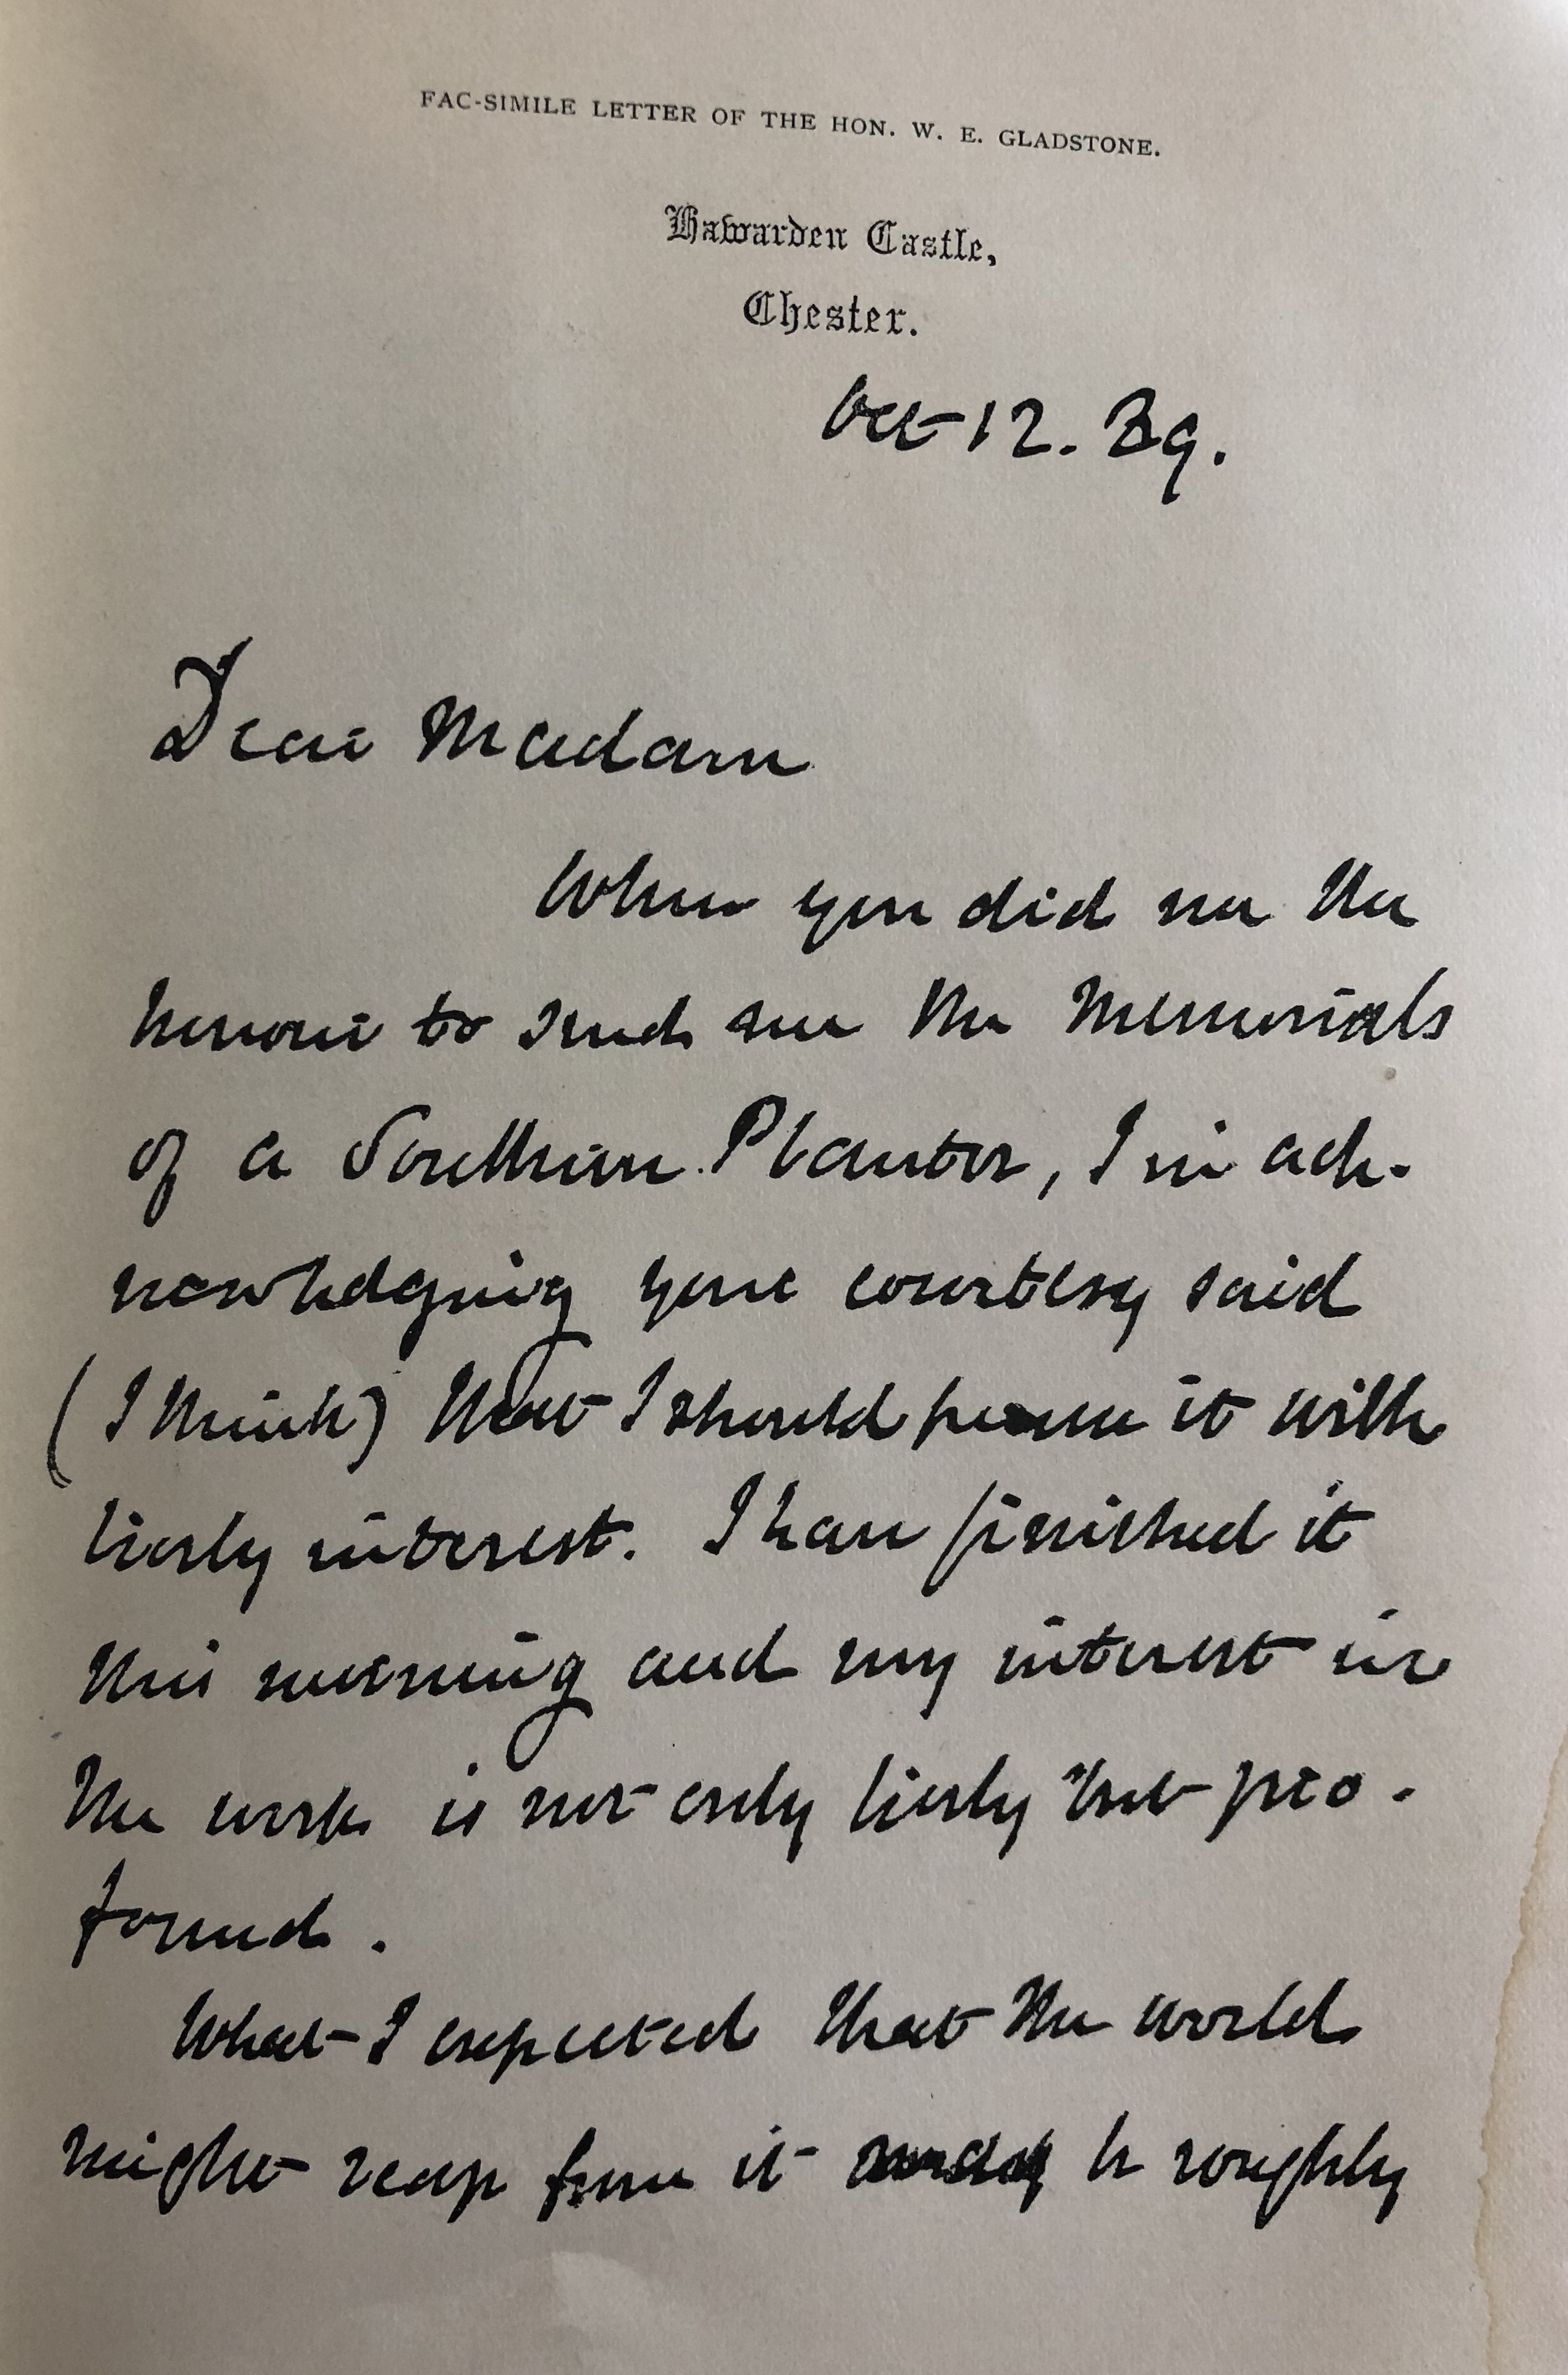 FAC-SIMILE LETTER OF THE HON. W. E. GLADSTONE.
Hawarden Castle,
Chester.
Oct 12. 89.
Dear Madam
When you did me the
honour to send me the Memorials
of a Southern Planter, I in ack-
nowledging your courtesy said
(I think) that I should peruse it with
lively interest. I have finished it
this morning and my interest in
the work is not only lively but pro-
found.
What I expected that the world
might reap from it may be roughly